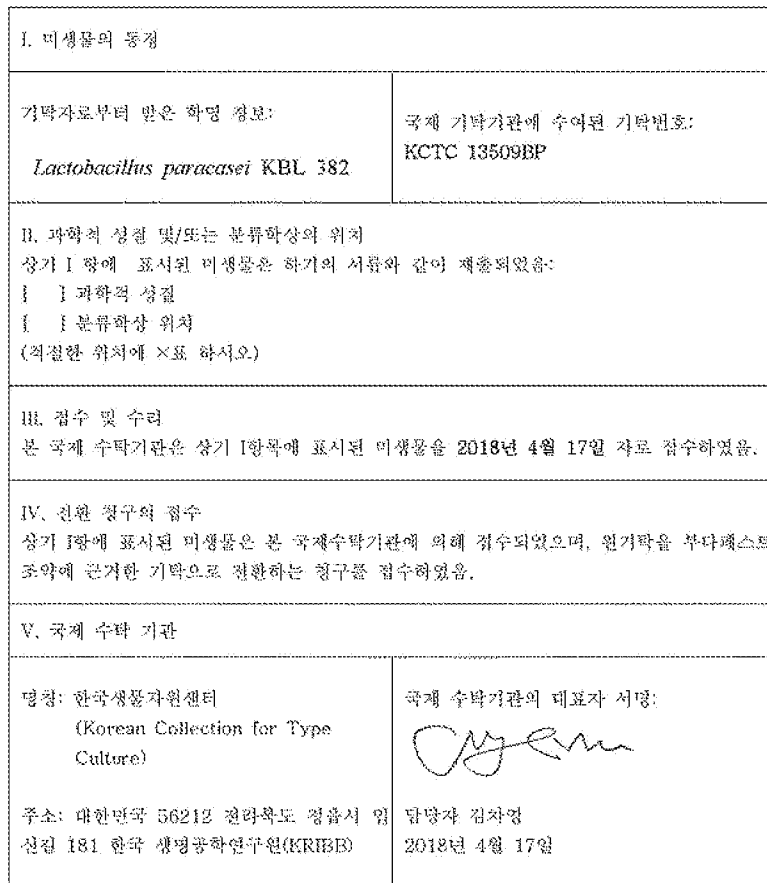 I. 미생물의 동정
기탁자로부터 받은 학명 정보:
Lactobacillus paracasei KBL 382
국제 기탁기관에 수여된 기탁번호:
KCTC 13509BP
II. 과학적 성질 및/또는 분류학상의 위치
상기 I 항에 표시된 미생물은 하기의 서류와 같이 제출되었음:
[ ] 과학적 성질
[ ] 분류학상 위치
(적절한 위치에 ×표 하시오)
III. 접수 및 수리
본 국제 수탁기관은 상기 I항목에 표시된 미생물을 2018년 4월 17일 자로 접수하였음.
IV. 전환 청구의 접수
상기 I항에 표시된 미생물은 본 국제수탁기관에 의해 접수되었으며, 원기탁을 부다페스트
조약에 근거한 기탁으로 전환하는 청구를 접수하였음.
V. 국제 수탁 기관
명칭: 한국생물자원센터
(Korean Collection for Type
Culture)
주소: 대한민국 56212 전라북도 정읍시 입
신길 181 한국 생명공학연구원(KRIBB)
국제 수탁기관의 대표자 서명:
담당자 김차영
2018년 4월 17일